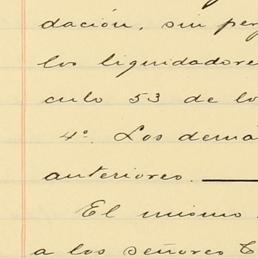 dación, sin per
los liquidadore
culo 53 de lo
4º. Los demá
anteriores.
El mismo
a los señores C